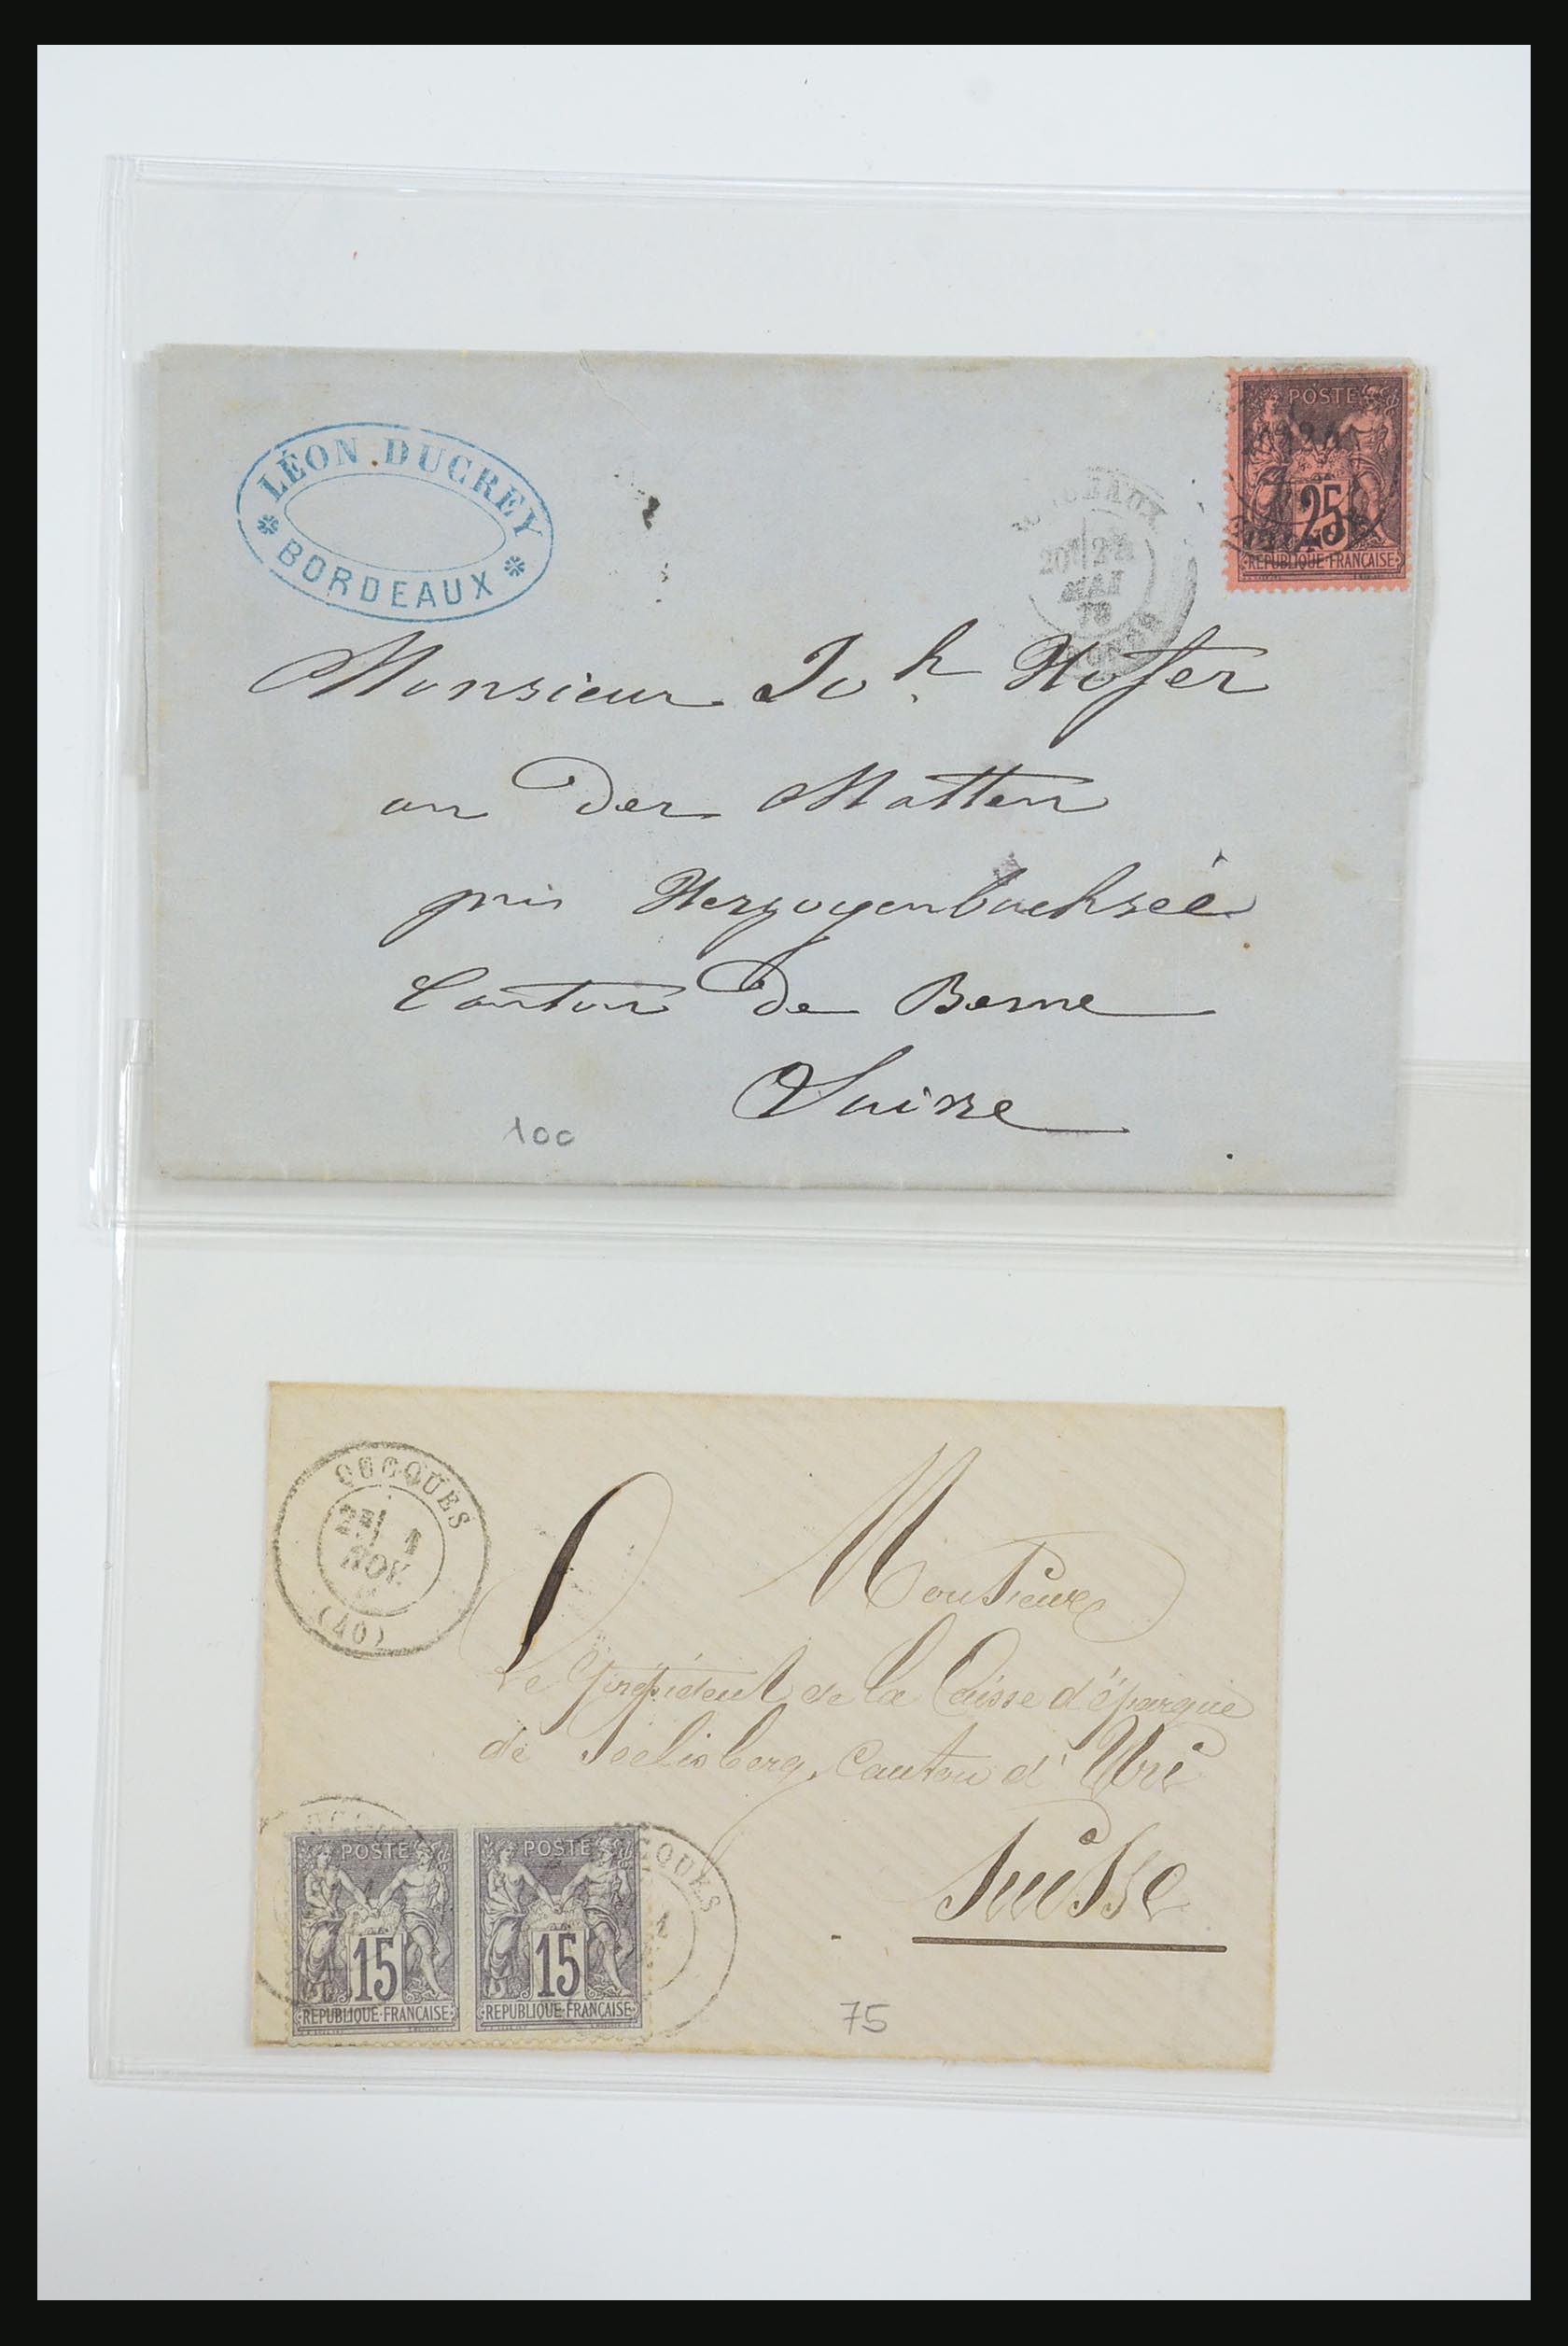 LÉON DUCREY
BORDEAUX
POSTE
25
REPUBLIQUE FRANÇAISE
BORDEAUX
MAI
Monsieur Joh Hofer
an der Matten
près Herzogenbuchsée
Canton de Berne
Suisse
100
OUCQUES
1
NOV.
(40)
Monsieur
Le Président de la Caisse d'épargne
de Seelisberg, Canton d'Uri
Suisse
POSTE
15
REPUBLIQUE FRANÇAISE
POSTE
15
REPUBLIQUE FRANÇAISE
CQUES
1
75